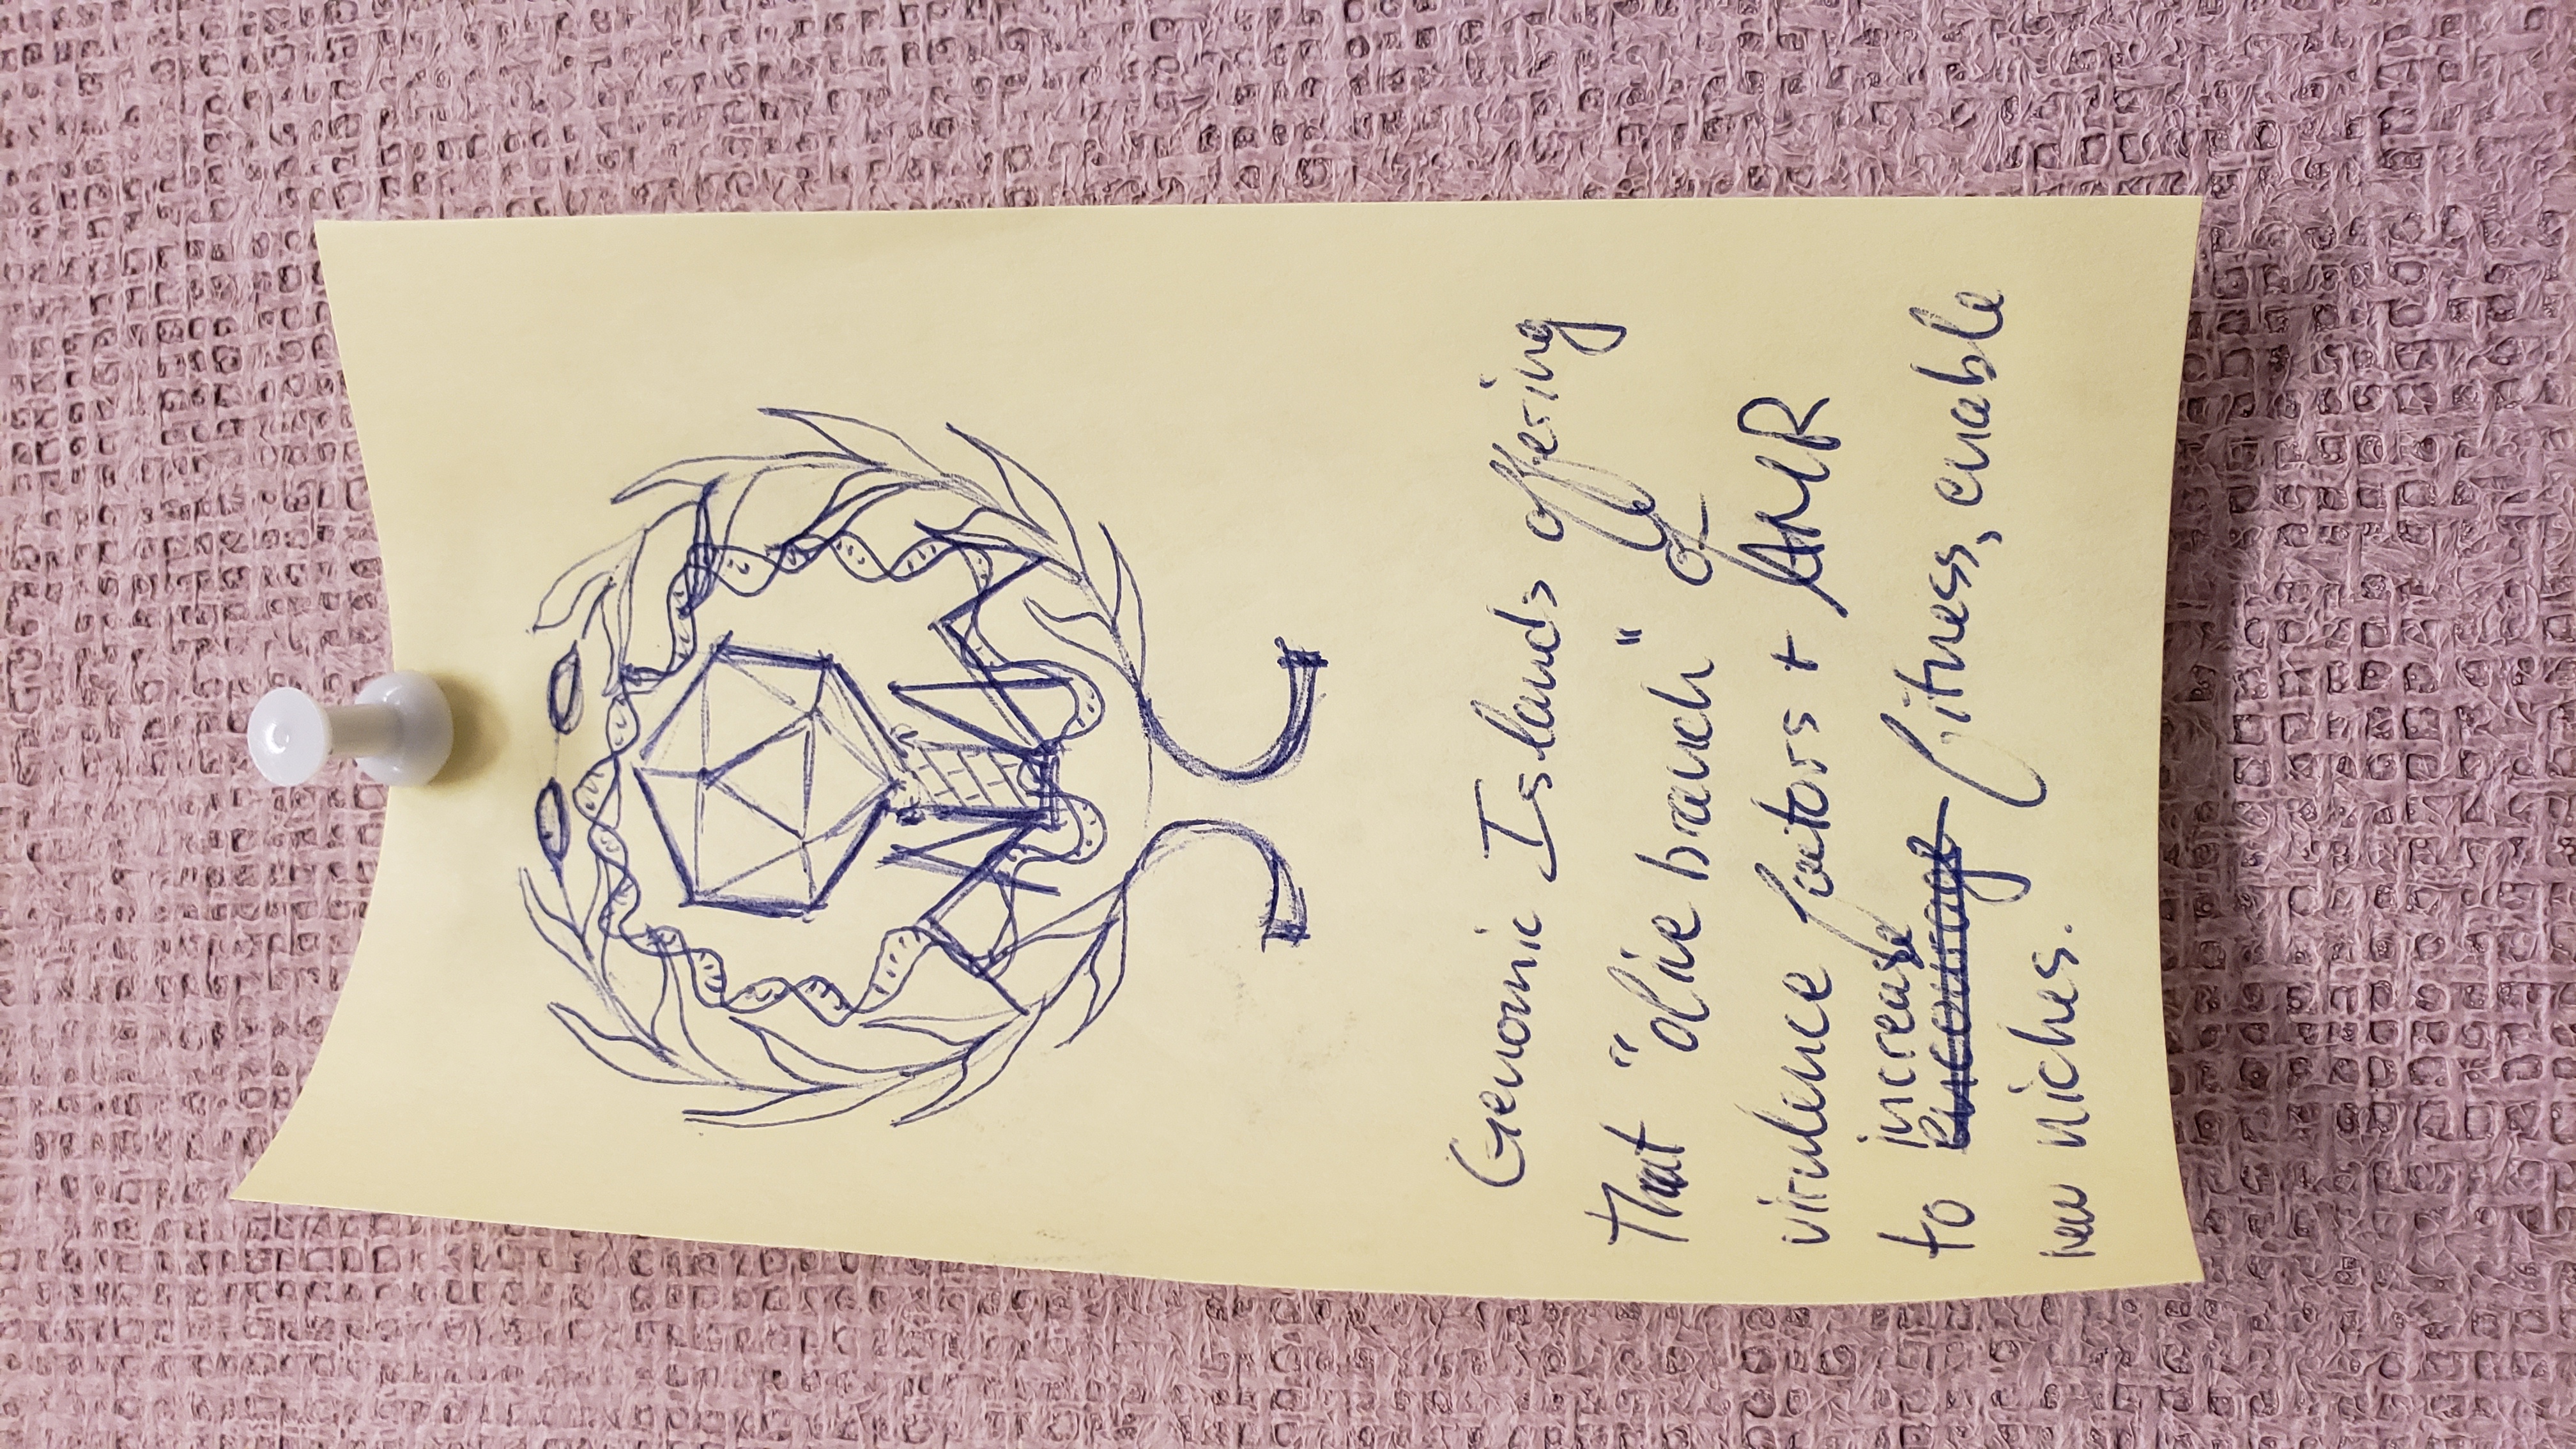 Genomic Islands offering
that "olive branch" of
virulence factors + AMR
increase
to encourage fitness, enable
new niches.